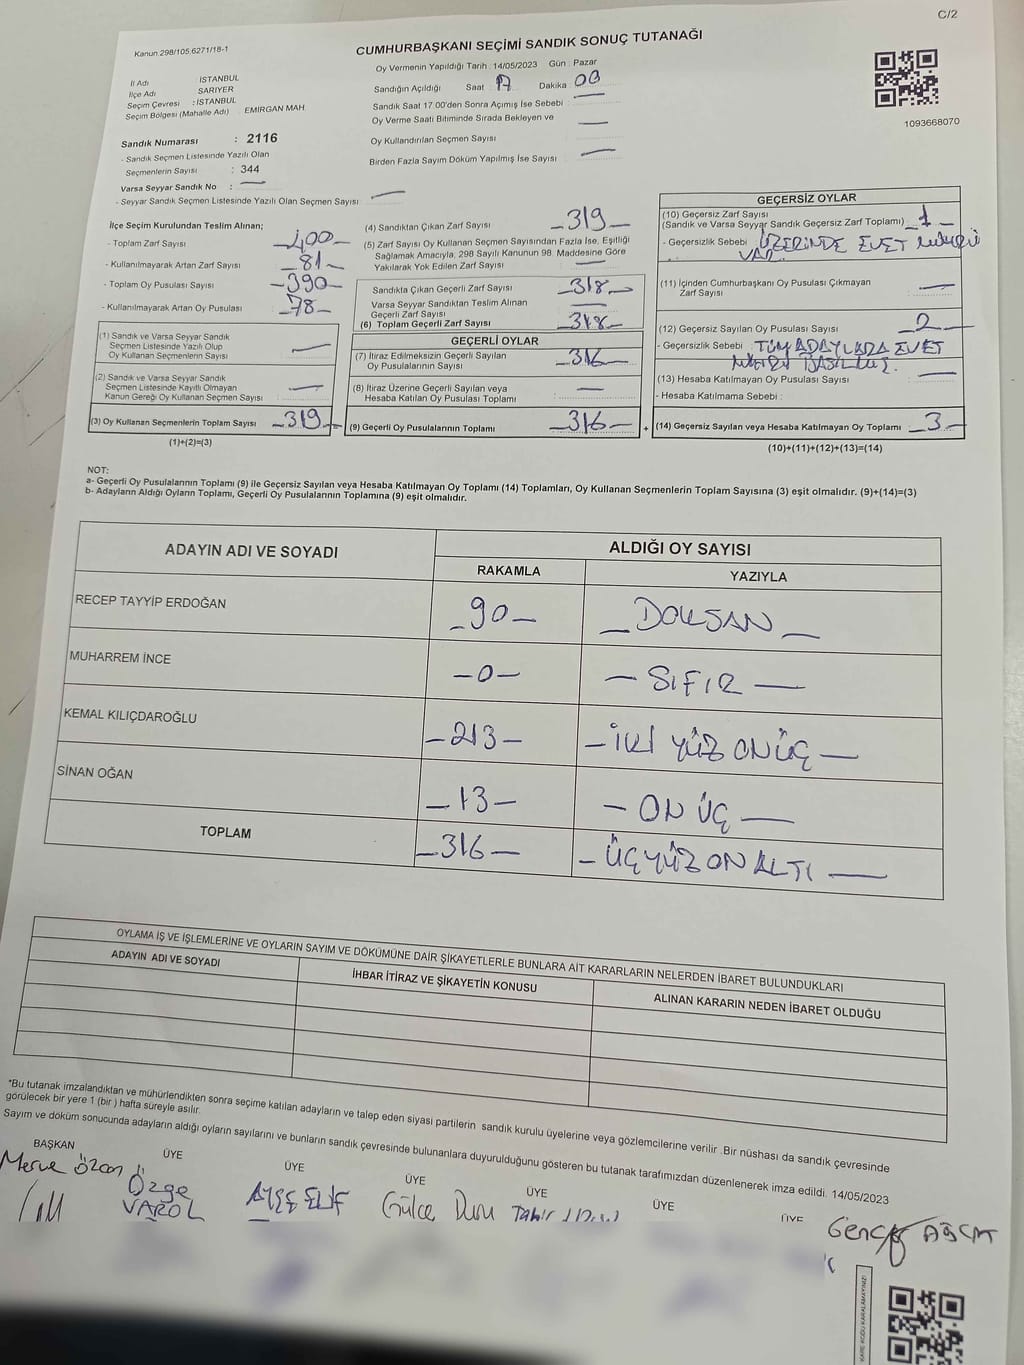 C/2
Kanun 298/105.6271/18-1
CUMHURBAŞKANI SEÇİMİ SANDIK SONUÇ TUTANAĞI
Oy Vermenin Yapıldığı Tarih : 14/05/2023 Gün : Pazar
İl Adı İSTANBUL
İlçe Adı SARIYER
Seçim Çevresi : İSTANBUL
Seçim Bölgesi (Mahalle Adı) : EMİRGAN MAH.
Sandığın Açıldığı Saat : 17 Dakika : 00
Sandık Saat 17.00'den Sonra Açımış İse Sebebi
Oy Verme Saati Bitiminde Sırada Bekleyen ve
Oy Kullandırılan Seçmen Sayısı
Birden Fazla Sayım Döküm Yapılmış İse Sayısı
1093668070
Sandık Numarası : 2116
- Sandık Seçmen Listesinde Yazılı Olan
Seçmenlerin Sayısı : 344
Varsa Seyyar Sandık No :
- Seyyar Sandık Seçmen Listesinde Yazılı Olan Seçmen Sayısı:
İlçe Seçim Kurulundan Teslim Alınan;
- Toplam Zarf Sayısı 400
- Kullanılmayarak Artan Zarf Sayısı 81
- Toplam Oy Pusulası Sayısı 390
- Kullanılmayarak Artan Oy Pusulası 78
(1) Sandık ve Varsa Seyyar Sandık
Seçmen Listesinde Yazılı Olup
Oy Kullanan Seçmenlerin Sayısı
(2) Sandık ve Varsa Seyyar Sandık
Seçmen Listesinde Kayıtlı Olmayan
Kanun Gereği Oy Kullanan Seçmen Sayısı
(3) Oy Kullanan Seçmenlerin Toplam Sayısı 319
(1)+(2)=(3)
(4) Sandıktan Çıkan Zarf Sayısı 319
(5) Zarf Sayısı Oy Kullanan Seçmen Sayısından Fazla İse, Eşitliği
Sağlamak Amacıyla, 298 Sayılı Kanunun 98. Maddesine Göre
Yakılarak Yok Edilen Zarf Sayısı
Sandıkta Çıkan Geçerli Zarf Sayısı 318
Varsa Seyyar Sandıktan Teslim Alınan
Geçerli Zarf Sayısı
(6) Toplam Geçerli Zarf Sayısı 318
GEÇERLİ OYLAR
(7) İtiraz Edilmeksizin Geçerli Sayılan
Oy Pusulalarının Sayısı 316
(8) İtiraz Üzerine Geçerli Sayılan veya
Hesaba Katılan Oy Pusulası Toplamı
(9) Geçerli Oy Pusulalarının Toplamı 316 +
GEÇERSİZ OYLAR
(10) Geçersiz Zarf Sayısı
(Sandık ve Varsa Seyyar Sandık Geçersiz Zarf Toplamı) 1
- Geçersizlik Sebebi : ÜZERİNDE EVET MÜHRÜ
VAR
(11) İçinden Cumhurbaşkanı Oy Pusulası Çıkmayan
Zarf Sayısı
(12) Geçersiz Sayılan Oy Pusulası Sayısı 2
- Geçersizlik Sebebi : TÜM ADAYLARA EVET
MÜHRÜ BASILMIŞ.
(13) Hesaba Katılmayan Oy Pusulası Sayısı
- Hesaba Katılmama Sebebi :
(14) Geçersiz Sayılan veya Hesaba Katılmayan Oy Toplamı 3
(10)+(11)+(12)+(13)=(14)
NOT:
a- Geçerli Oy Pusulalarının Toplamı (9) ile Geçersiz Sayılan veya Hesaba Katılmayan Oy Toplamı (14) Toplamları, Oy Kullanan Seçmenlerin Toplam Sayısına (3) eşit olmalıdır. (9)+(14)=(3)
b- Adayların Aldığı Oyların Toplamı, Geçerli Oy Pusulalarının Toplamına (9) eşit olmalıdır.
ADAYIN ADI VE SOYADI ALDIĞI OY SAYISI
RAKAMLA YAZIYLA
RECEP TAYYİP ERDOĞAN 90 DOKSAN
MUHARREM İNCE 0 SIFIR
KEMAL KILIÇDAROĞLU 213 İKİ YÜZ ON ÜÇ
SİNAN OĞAN 13 ON ÜÇ
TOPLAM 316 ÜÇ YÜZ ON ALTI
OYLAMA İŞ VE İŞLEMLERİNE VE OYLARIN SAYIM VE DÖKÜMÜNE DAİR ŞİKAYETLERLE BUNLARA AİT KARARLARIN NELERDEN İBARET BULUNDUKLARI
ADAYIN ADI VE SOYADI İHBAR İTİRAZ VE ŞİKAYETİN KONUSU ALINAN KARARIN NEDEN İBARET OLDUĞU
*Bu tutanak imzalandıktan ve mühürlendikten sonra seçime katılan adayların ve talep eden siyasi partilerin sandık kurulu üyelerine veya gözlemcilerine verilir .Bir nüshası da sandık çevresinde
görülecek bir yere 1 (bir ) hafta süreyle asılır.
Sayım ve döküm sonucunda adayların aldığı oyların sayılarını ve bunların sandık çevresinde bulunanlara duyurulduğunu gösteren bu tutanak tarafımızdan düzenlenerek imza edildi. 14/05/2023
BAŞKAN ÜYE ÜYE ÜYE ÜYE ÜYE ÜYE
Merve Özcan Özge VAROL AYŞE ELİF Gülce Duru Tahir Gencay
KARE KODU KARALAMAYINIZ!